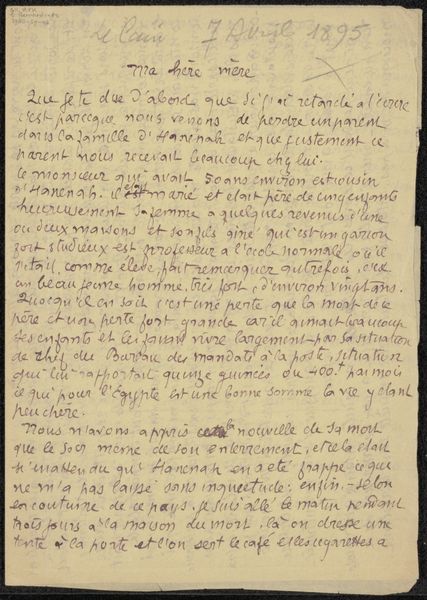 Le Caire 7 Avril 1895
Ma chère mère
Que je te dise d'abord que si j'ai retardé a t'ecrire
c'est parceque nous venons de perdre un parent
dans la famille d'Hanenah et que justement ce
parent nous recevait beaucoup chez lui.
Le monsieur qui avait 50 ans environ est cousin
d'Hanenah. il était marié et etait père de cinq enfants
heureusement sa femme a quelques revenus d'une
ou deux maisons et son fils ainé qui est un garçon
fort studieux est professeur a l'école normale, où il
s'etait, comme élève, fait remarquer autrefois, c'est
un beau jeune homme, très fort, d'environ vingt ans.
Quoiqu'il en soit c'est une perte que la mort de ce
père et une perte fort grande car il aimait beaucoup
ses enfants et les faisait vivre largement par sa situation
de chef du Bureau des mandats à la poste, situation
qui lui rapportait quinze guinées ou 400f par mois
ce qui pour l'Égypte est une bonne somme la vie y étant
peu chère.
Nous n'avons appris la nouvelle de sa mort
que le soir même de son enterrement, et cela etait
si inattendu qu'Hanenah en a été frappé ce qui
ne m'a pas laissé sans inquietude; enfin, - selon
la coutume de ce pays, je suis allé le matin pendant
trois jours à la maison du mort, là on dresse une
tente à la porte et l'on sert le café et les cigarettes a